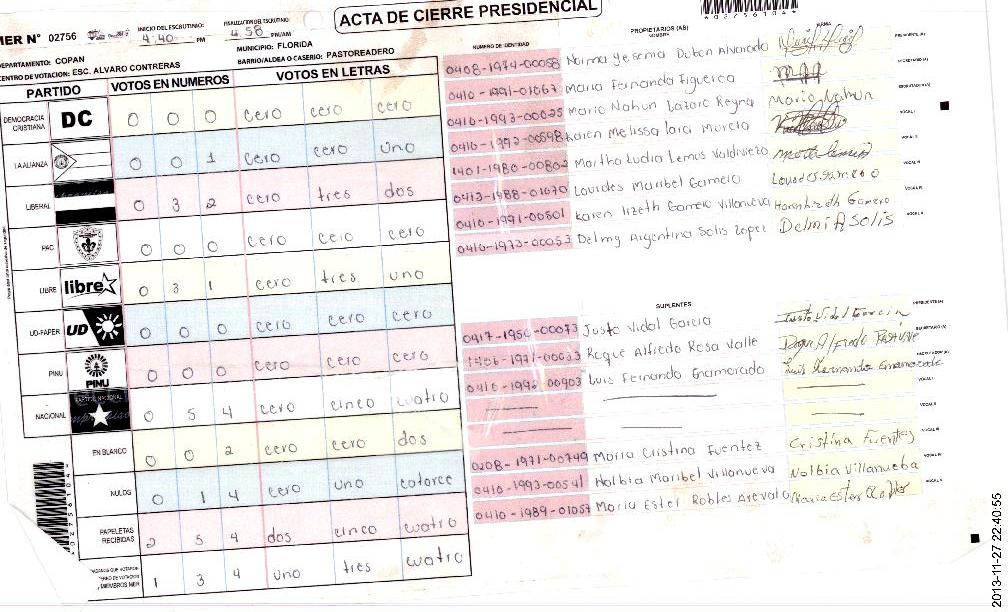 ACTA DE CIERRE PRESIDENCIAL
MER N° 02756
INICIO DEL ESCRUTINIO:
4:40 PM
FINALIZACION DEL ESCRUTINIO:
4:58 PM/AM
DEPARTAMENTO: COPAN
MUNICIPIO: FLORIDA
CENTRO DE VOTACION: ESC. ALVARO CONTRERAS
BARRIO/ALDEA O CASERIO: PASTOREADERO
PARTIDO VOTOS EN NUMEROS VOTOS EN LETRAS
DEMOCRACIA CRISTIANA DC 0 0 0 cero cero cero
LA ALIANZA 0 0 1 cero cero uno
LIBERAL 0 3 2 cero tres dos
PAC 0 0 0 cero cero cero
LIBRE libre 0 3 1 cero tres uno
UD-FAPER UD 0 0 0 cero cero cero
PINU PINU 0 0 0 cero cero cero
NACIONAL PARTIDO NACIONAL 0 5 4 cero cinco cuatro
EN BLANCO 0 0 2 cero cero dos
NULOS 0 1 4 cero uno catorce
PAPELETAS RECIBIDAS 2 5 4 dos cinco cuatro
MIEMBROS MER 1 3 4 uno tres cuatro
PROPIETARIOS (AS)
NUMERO DE IDENTIDAD NOMBRE FIRMA
0408-1974-00058 Norma Yesenia Dubon Alvarado PRESIDENTE (A)
0410-1991-01067 Maria Fernanda Figueroa SECRETARIO (A)
0410-1993-00025 Mario Nahun Lazaro Reyna Mario Nahun ESCRUTADOR (A)
0410-1992-00598 Karen Melissa Lara Murcia VOCAL I
1401-1980-00802 Martha Lidia Lemus Valdiviezo VOCAL II
0413-1988-01070 Lourdes Maribel Gamero Lourdes Gamero VOCAL III
0410-1991-00501 Karen Lizeth Gamero Villanueva VOCAL IV
0410-1973-00053 Delmy Argentina Solis Lopez Delmi A Solis VOCAL V
SUPLENTES
0417-1950-00073 Justo Vidal Garcia Justo Vidal Garcia PRESIDENTE (A)
Roque Alfredo Rosa Valle SECRETARIO (A)
0410-1992-00903 Luis Fernando Enamorado Luis Fernando Enamorado ESCRUTADOR (A)
VOCAL I
VOCAL II
0208-1971-00749 Maria Cristina Fuentez Cristina Fuentes VOCAL III
0410-1993-00541 Nolbia Maribel Villanueva Nolbia Villanueba VOCAL IV
0410-1989-01057 Maria Ester Robles Arevalo Maria Ester Robles VOCAL V
2013-11-27 22:40:55